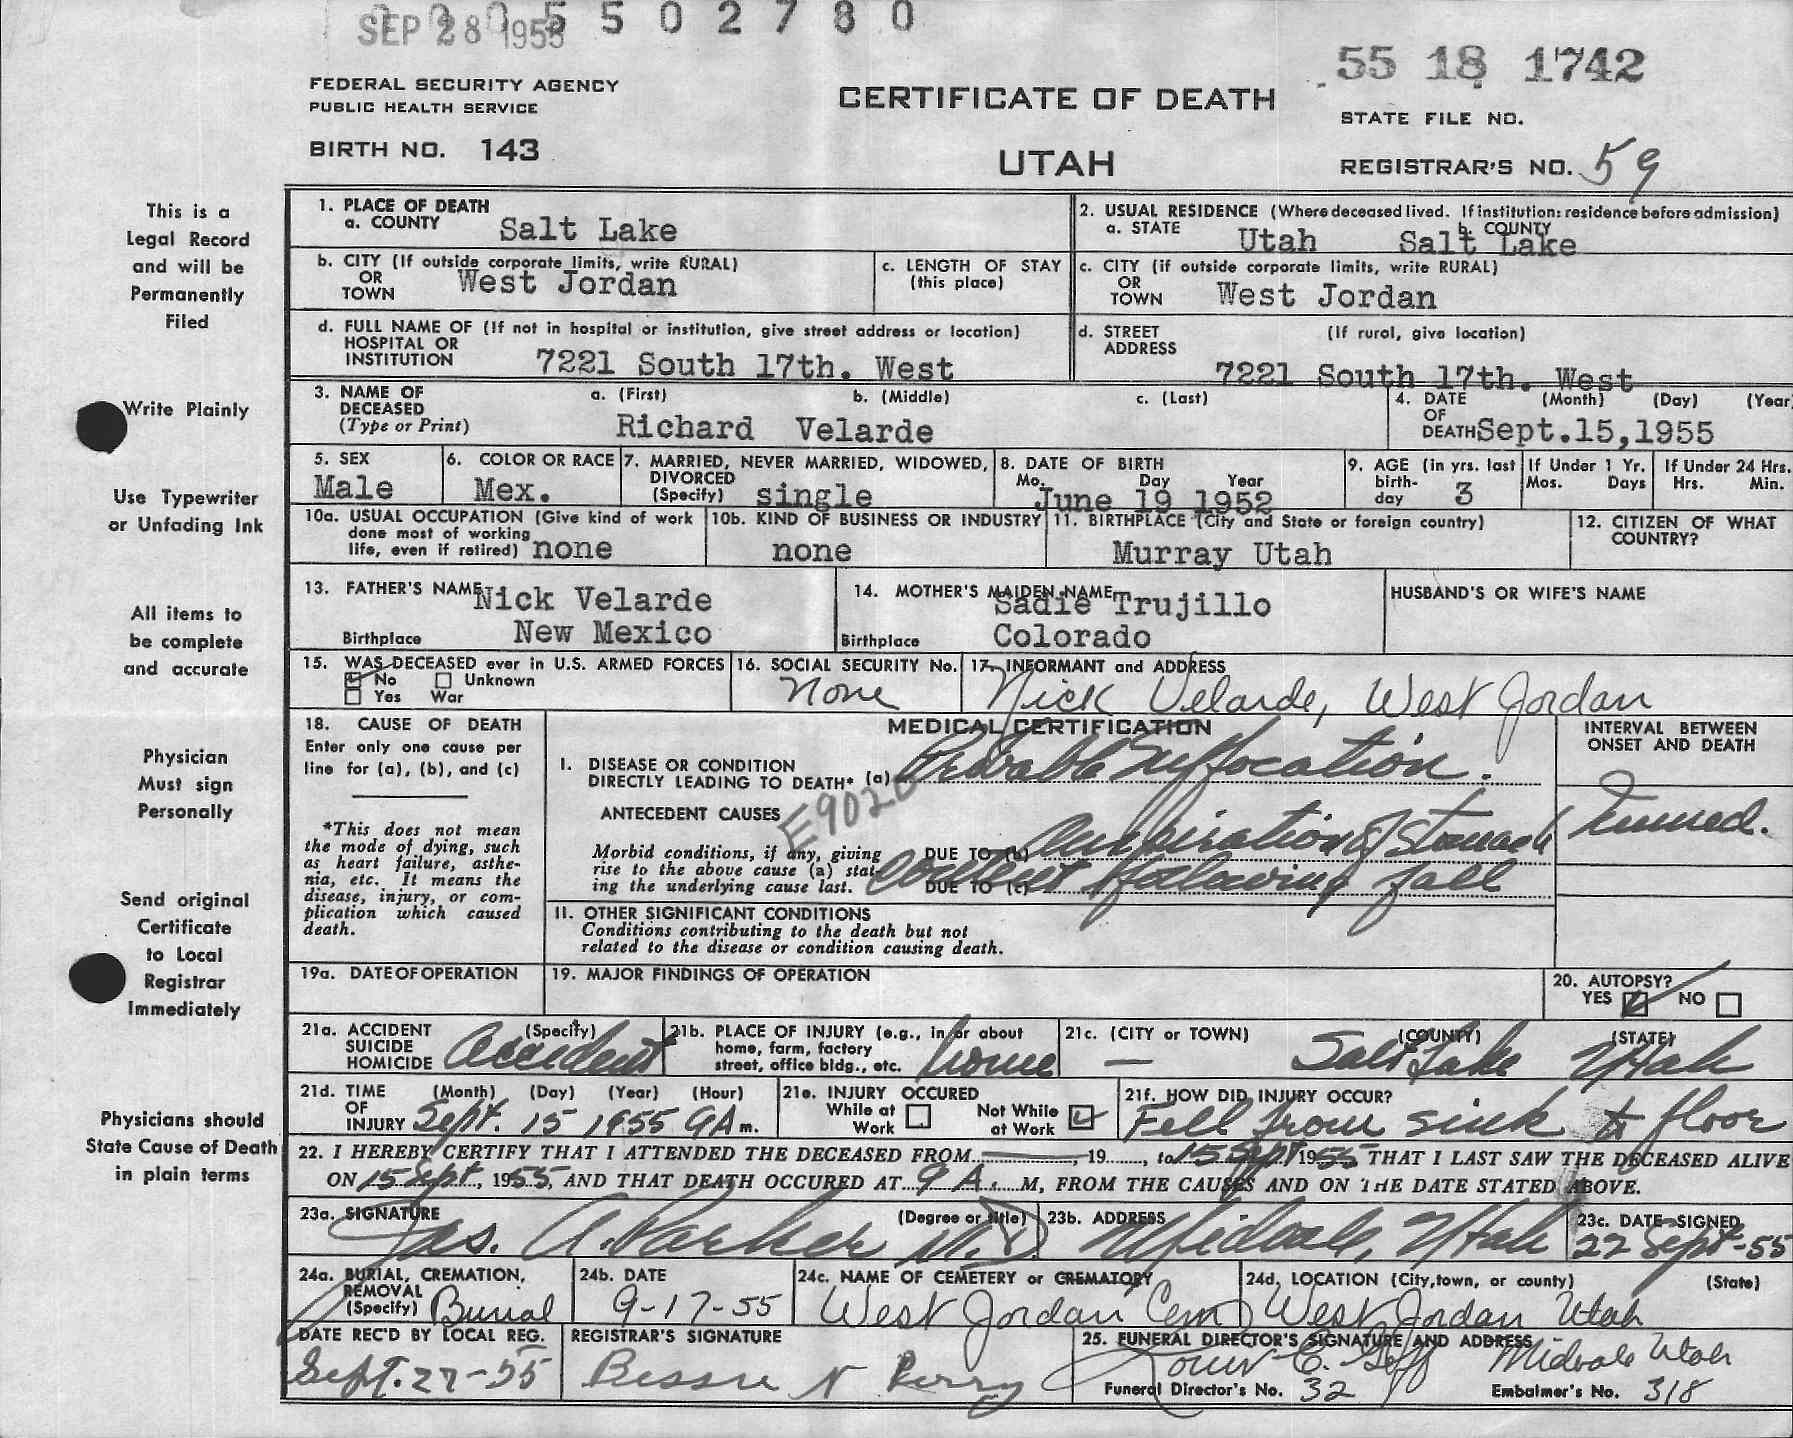 SEP 28 1955 5 5 0 2 7 8 0
55 18 1742
FEDERAL SECURITY AGENCY
PUBLIC HEALTH SERVICE
CERTIFICATE OF DEATH
STATE FILE NO.
BIRTH NO. 143
UTAH
REGISTRAR'S NO. 59
This is a
Legal Record
and will be
Permanently
Filed
Write Plainly
Use Typewriter
or Unfading Ink
All items to
be complete
and accurate
Physician
Must sign
Personally
Send original
Certificate
to Local
Registrar
Immediately
Physicians should
State Cause of Death
in plain terms
1. PLACE OF DEATH
a. COUNTY Salt Lake
2. USUAL RESIDENCE (Where deceased lived. If institution: residence before admission)
a. STATE Utah b. COUNTY Salt Lake
b. CITY (If outside corporate limits, write RURAL)
OR
TOWN West Jordan
c. LENGTH OF STAY
(this place)
c. CITY (if outside corporate limits, write RURAL)
OR
TOWN West Jordan
d. FULL NAME OF (If not in hospital or institution, give street address or location)
HOSPITAL OR
INSTITUTION 7221 South 17th. West
d. STREET (If rural, give location)
ADDRESS
7221 South 17th. West
3. NAME OF a. (First) b. (Middle) c. (Last)
DECEASED
(Type or Print) Richard Velarde
4. DATE (Month) (Day) (Year
OF
DEATH Sept.15,1955
5. SEX
Male
6. COLOR OR RACE
Mex.
7. MARRIED, NEVER MARRIED, WIDOWED,
DIVORCED
(Specify) single
8. DATE OF BIRTH
Mo. Day Year
June 19 1952
9. AGE (in yrs. last
birth-
day 3
If Under 1 Yr.
Mos. Days
If Under 24 Hrs.
Hrs. Min.
10a. USUAL OCCUPATION (Give kind of work
done most of working
life, even if retired) none
10b. KIND OF BUSINESS OR INDUSTRY
none
11. BIRTHPLACE (City and State or foreign country)
Murray Utah
12. CITIZEN OF WHAT
COUNTRY?
13. FATHER'S NAME Nick Velarde
Birthplace New Mexico
14. MOTHER'S MAIDEN NAME
Sadie Trujillo
Birthplace Colorado
HUSBAND'S OR WIFE'S NAME
15. WAS DECEASED ever in U.S. ARMED FORCES
No Unknown
Yes War
16. SOCIAL SECURITY No.
None
17. INFORMANT and ADDRESS
Nick Velarde, West Jordan
18. CAUSE OF DEATH
Enter only one cause per
line for (a), (b), and (c)
*This does not mean
the mode of dying, such
as heart failure, asthe-
nia, etc. It means the
disease, injury, or com-
plication which caused
death.
MEDICAL CERTIFICATION
I. DISEASE OR CONDITION
DIRECTLY LEADING TO DEATH* (a) Probable Suffocation.
E9020
ANTECEDENT CAUSES
Morbid conditions, if any, giving
rise to the above cause (a) stat-
ing the underlying cause last.
DUE TO (b) of stomach
DUE TO (c) Content following fall
INTERVAL BETWEEN
ONSET AND DEATH
Immed.
II. OTHER SIGNIFICANT CONDITIONS
Conditions contributing to the death but not
related to the disease or condition causing death.
19a. DATE OF OPERATION
19. MAJOR FINDINGS OF OPERATION
20. AUTOPSY?
YES NO
21a. ACCIDENT (Specify)
SUICIDE
HOMICIDE Accident
21b. PLACE OF INJURY (e.g., in or about
home, farm, factory
street, office bldg., etc. home
21c. (CITY or TOWN) (COUNTY) (STATE)
— Salt Lake Utah
21d. TIME (Month) (Day) (Year) (Hour)
OF
INJURY Sept. 15 1955 9 A m.
21e. INJURY OCCURED
While at Work Not While at Work
21f. HOW DID INJURY OCCUR?
Fell from sink to floor
22. I HEREBY CERTIFY THAT I ATTENDED THE DECEASED FROM , 19 , to 15 Sept 1955 THAT I LAST SAW THE DECEASED ALIVE
ON 15 Sept, 1955, AND THAT DEATH OCCURED AT 9 A. M, FROM THE CAUSES AND ON THE DATE STATED ABOVE.
23a. SIGNATURE (Degree or title)
Jas. A. Parker M.D.
23b. ADDRESS
Midvale, Utah
23c. DATE SIGNED
22 Sept-55
24a. BURIAL, CREMATION,
REMOVAL
(Specify) Burial
24b. DATE
9-17-55
24c. NAME OF CEMETERY or CREMATORY
West Jordan Cem
24d. LOCATION (City, town, or county) (State)
West Jordan Utah
DATE REC'D BY LOCAL REG.
Sept. 27-55
REGISTRAR'S SIGNATURE
Bessie N Perry
25. FUNERAL DIRECTOR'S SIGNATURE AND ADDRESS
C. Goff Midvale Utah
Funeral Director's No. 32 Embalmer's No. 318